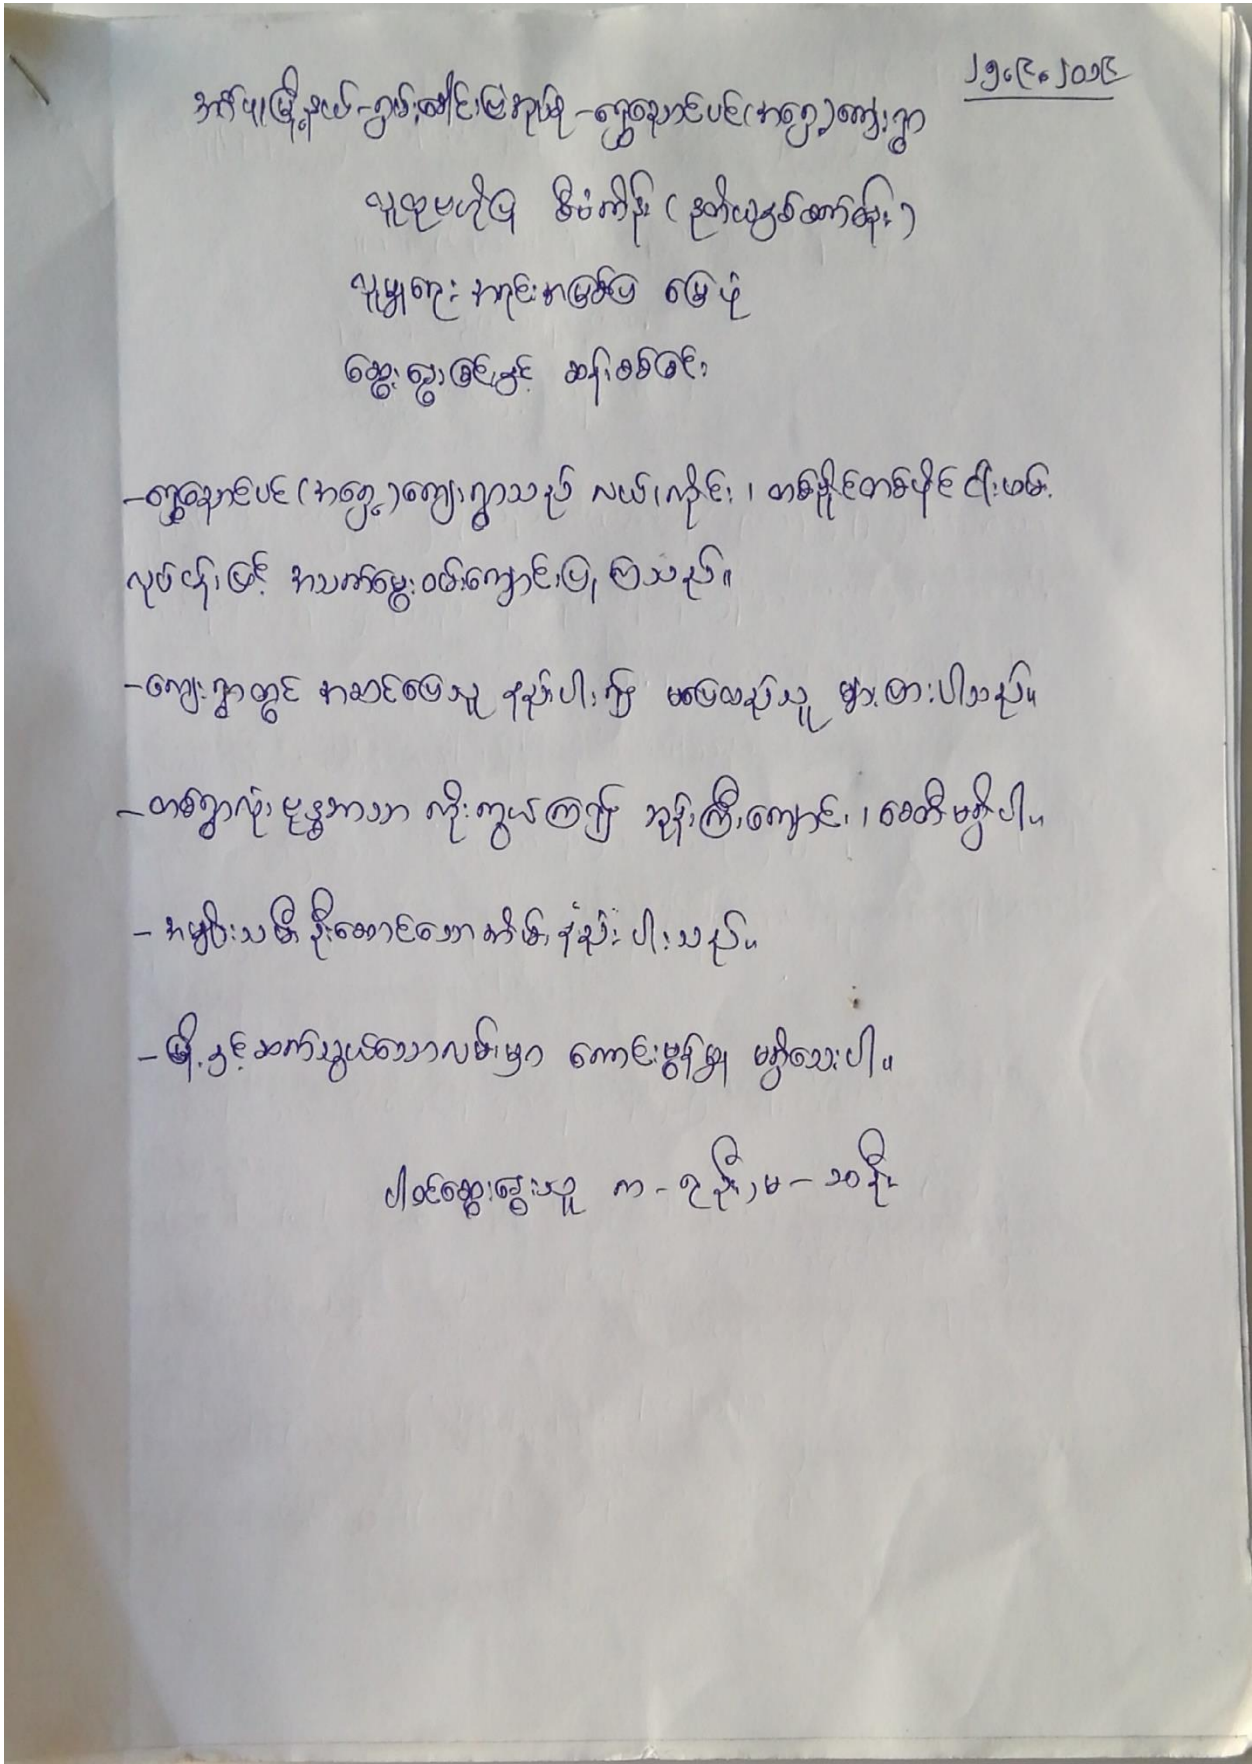 ၂၅.၉.၂၀၁၉
အင်္ဂပူမြို့နယ်-ကျွမ်းခေါင်းမြဲအုပ်စု-ရွှေညောင်ပင်(အရှေ့)ကျေးရွာ
လူထုဗဟိုပြု စီမံကိန်း (ဒုတိယနှစ်ထက်ဝန်း)
လူမှုရေး အရင်းအမြစ်ပြ မြေပုံ
ဆွေးနွေးခြင်းနှင့် ဆန်းစစ်ခြင်း
-ရွှေညောင်ပင်(အရှေ့)ကျေးရွာသည် လယ်၊ကိုင်း၊ တစ်နိုင်တစ်ပိုင် ငါးဖမ်း
လုပ်ငန်းဖြင့် အသက်မွေးဝမ်းကျောင်းပြုကြသည်။
-ကျေးရွာတွင် အဆင်ပြေသူ နည်းပါး၍ မပြေလည်သူ များပြားပါသည်။
-တစ်ရွာလုံး ဗုဒ္ဓဘာသာ ကိုးကွယ်ကြ၍ ဘုန်းကြီးကျောင်း၊ စေတီမရှိပါ။
-အမျိုးသမီးဦးဆောင်သော အိမ် နည်းပါးသည်။
-မြို့နှင့်ဆက်သွယ်သောလမ်းမှာ ကောင်းမွန်မှု မရှိသေးပါ။
ပါဝင်ဆွေးနွေးသူ က-၇ဦး၊ မ-၁၀ဦး